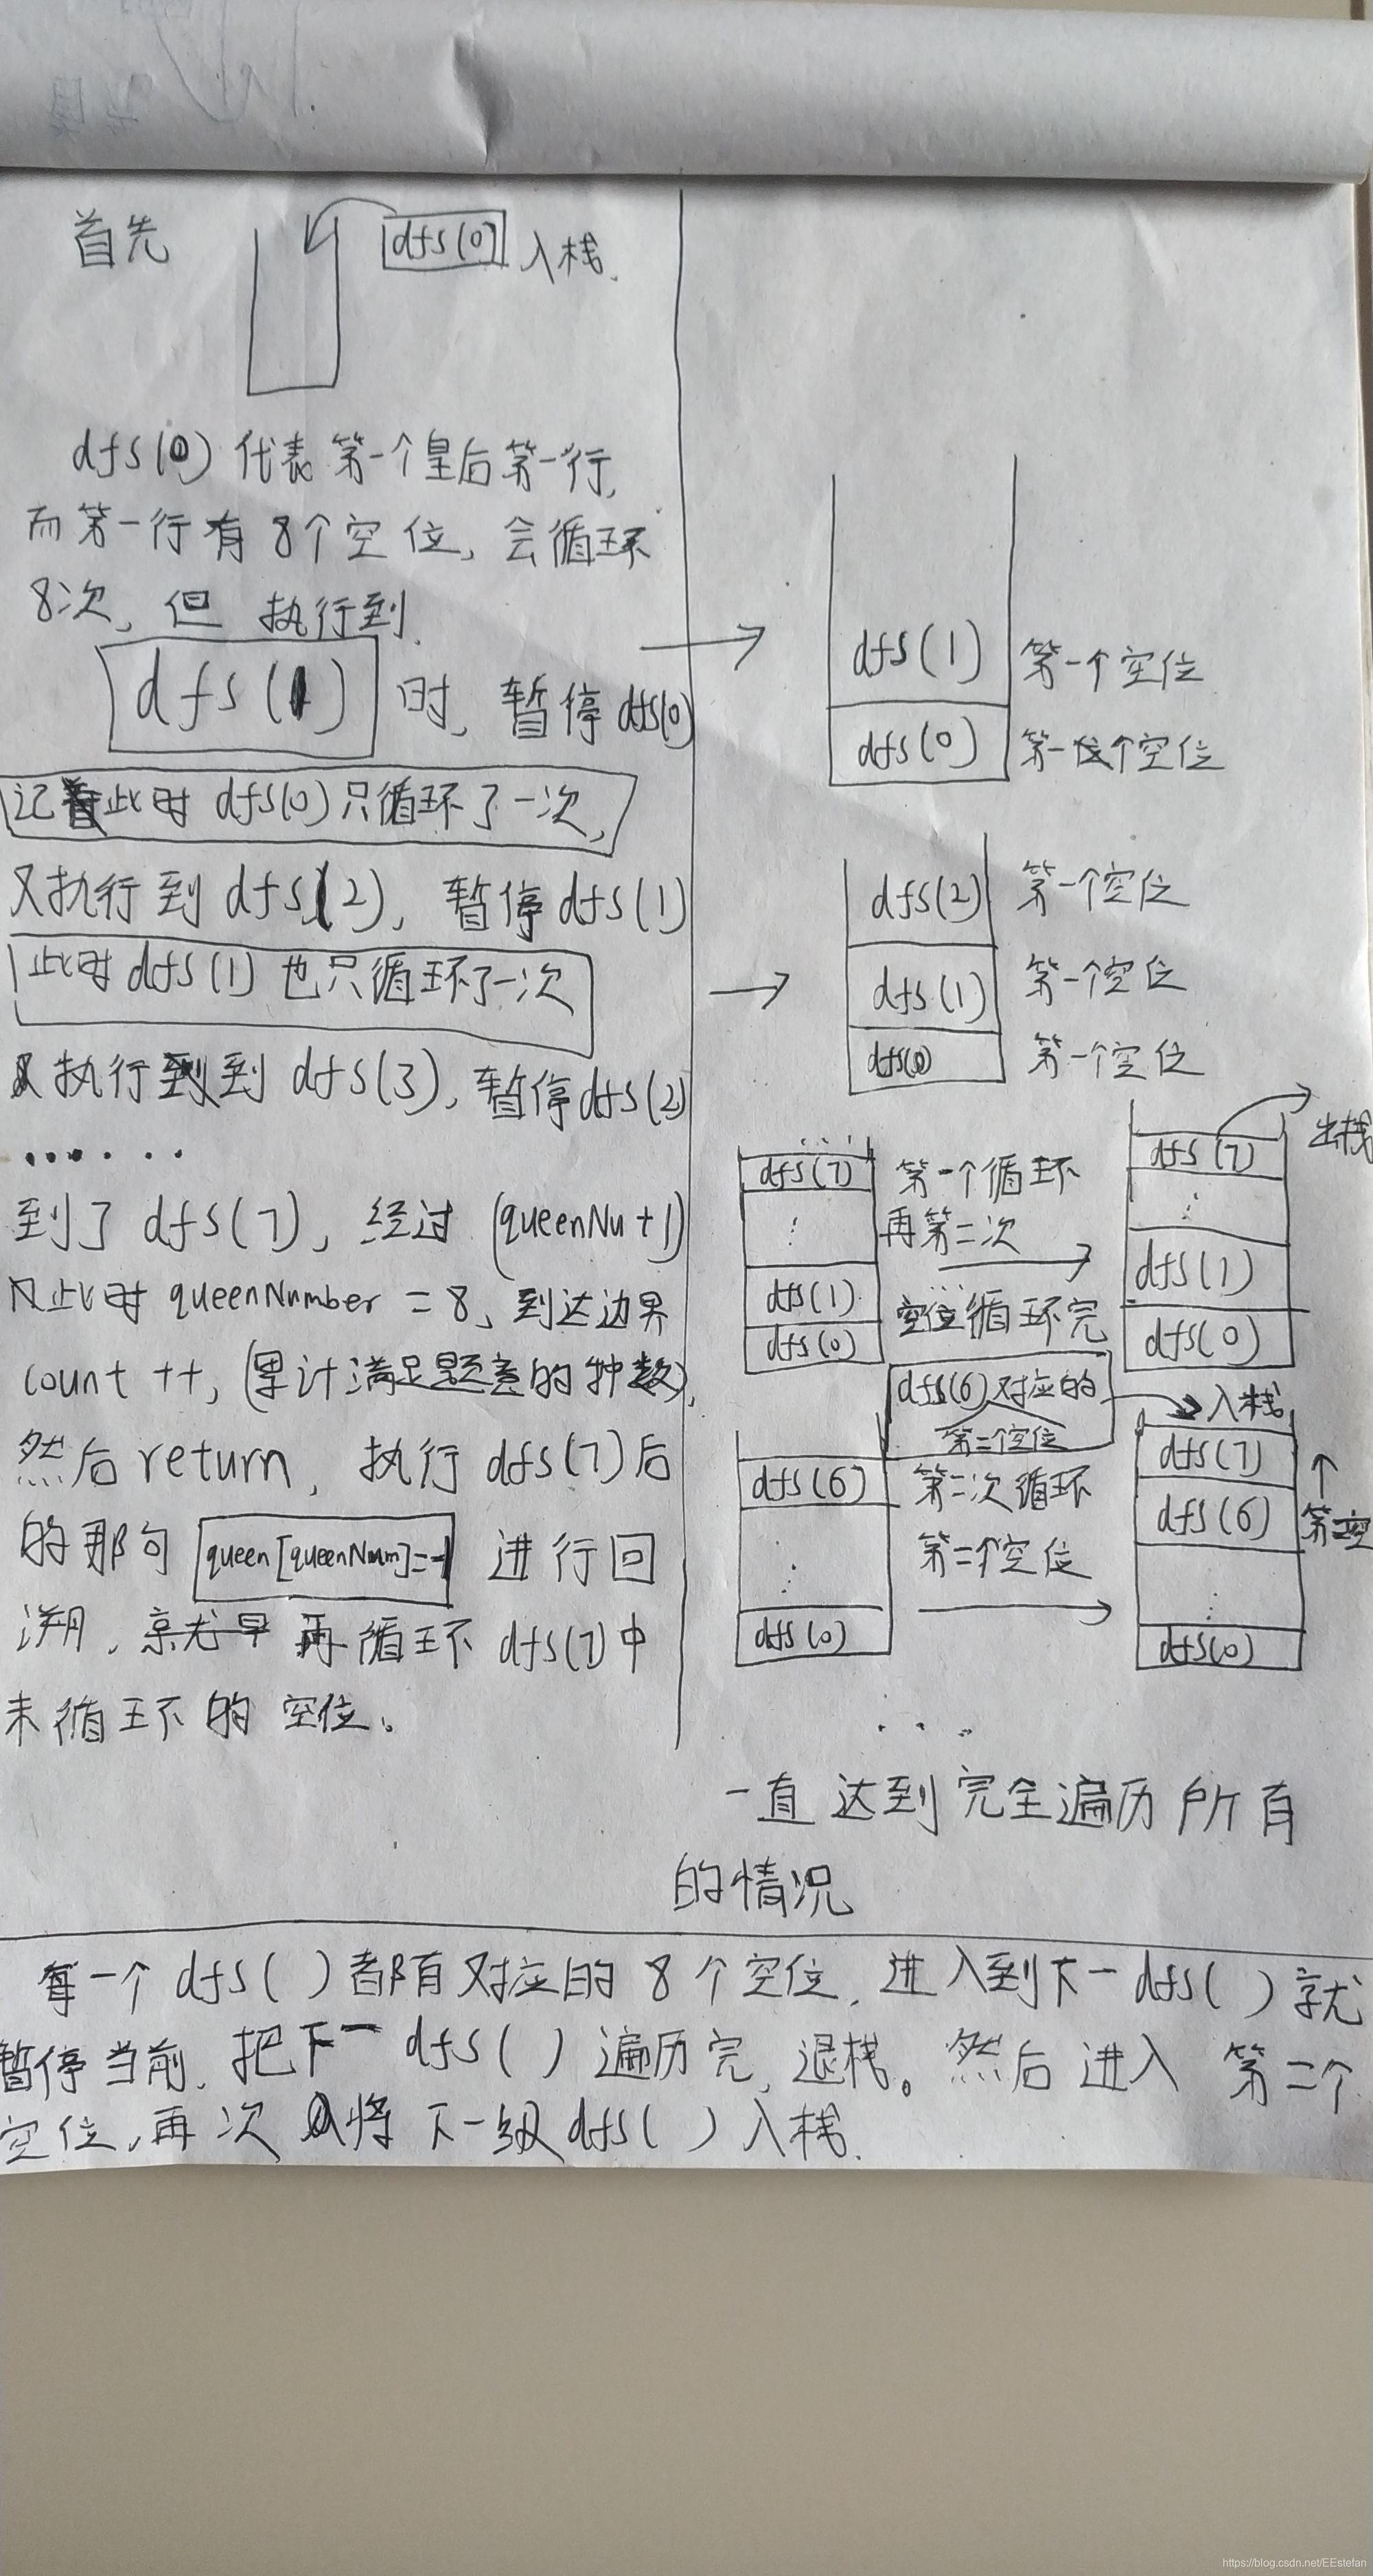 首先
dfs(0) 入栈.
dfs(0) 代表第一个皇后第一行,
而第一行有8个空位, 会循环
8次, 但 执行到
dfs(1) 时, 暂停dfs(0)
记着此时 dfs(0)只循环了一次,
又执行到dfs(2), 暂停dfs(1)
此时dfs(1)也只循环了一次
又执行到 dfs(3), 暂停dfs(2)
......
到了dfs(7), 经过 (queenNu+1)
此时queenNumber = 8, 到达边界
count ++, (累计满足题意的种数),
然后return, 执行dfs(7)后
的那句 queen[queenNum]=-1 进行回
溯, 再循环dfs(7)中
未循环的 空位。
dfs(1) 第一个空位
dfs(0) 第一个空位
dfs(2) 第一个空位
dfs(1) 第一个空位
dfs(0) 第一个空位
dfs(7)
⋮
dfs(1)
dfs(0)
第一个循环
再第二次
......
空位循环完
dfs(7) 出栈
⋮
dfs(1)
dfs(0)
dfs(6)对应的
第二个空位
入栈
dfs(6)
⋮
dfs(0)
第二次循环
第二个空位
dfs(7)
dfs(6)
⋮
dfs(0)
...
一直达到完全遍历所有
的情况
每一个dfs( )都有对应的8个空位, 进入到下一dfs( )就
暂停当前, 把下一dfs( )遍历完, 退栈。然后进入 第二个
空位, 再次 将下一级dfs( )入栈.
https://blog.csdn.net/EEstefan